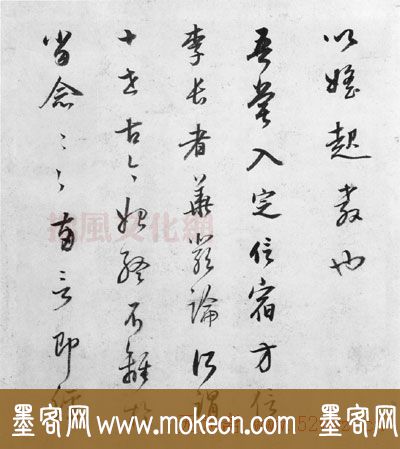 以起教也
吾嘗入定信宿方信
李長者華嚴論所謂
十世古今始終不離於
當念
風文化網
墨客网 www.mokecn.com 墨客网